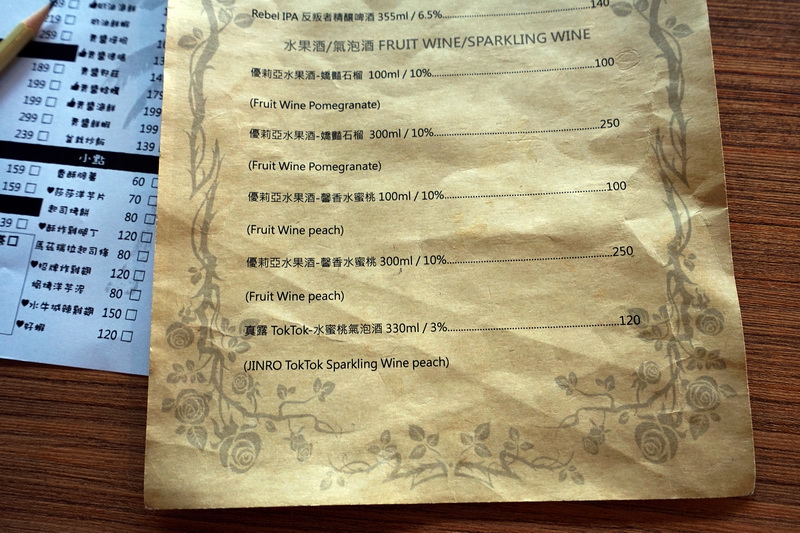 Rebel IPA 反叛者精釀啤酒 355ml / 6.5% 140
水果酒/氣泡酒 FRUIT WINE/SPARKLING WINE
優莉亞水果酒-嬌豔石榴 100ml / 10% 100
(Fruit Wine Pomegranate)
優莉亞水果酒-嬌豔石榴 300ml / 10% 250
(Fruit Wine Pomegranate)
優莉亞水果酒-馨香水蜜桃 100ml / 10% 100
(Fruit Wine peach)
優莉亞水果酒-馨香水蜜桃 300ml / 10% 250
(Fruit Wine peach)
真露 TokTok-水蜜桃氣泡酒 330ml / 3% 120
(JINRO TokTok Sparkling Wine peach)
219
189
199
199
299
239
159
159
139
小點
香酥脆薯 60
莎莎洋芋片 70
起司烤餅 80
酥炸雞腿丁 120
馬茲瑞拉起司條 80
招牌炸雞翅 120
焗烤洋芋泥 80
水牛城辣雞翅 150
好蝦 120